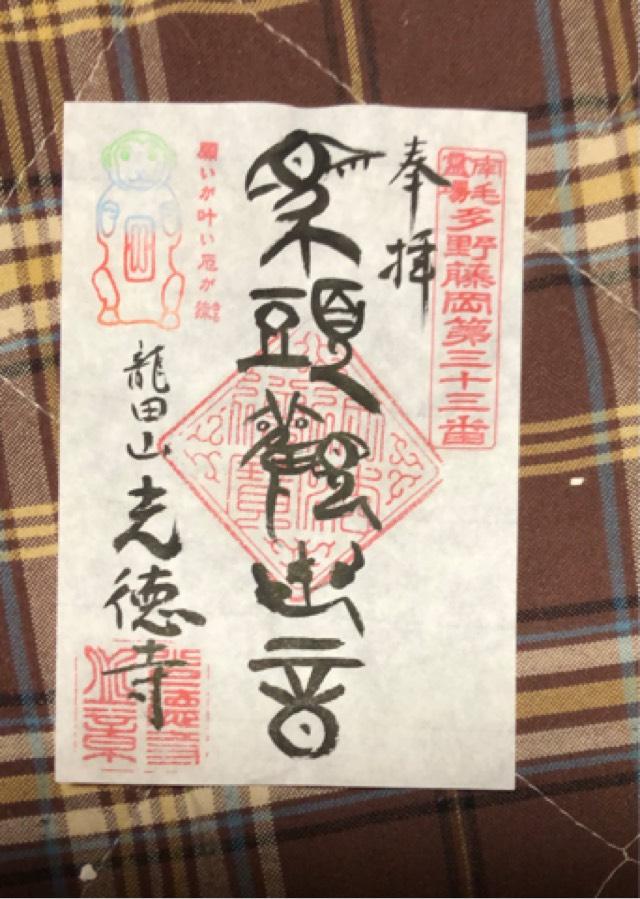 南毛
霊場
多野藤岡第三十三番
奉拝
頭觀世音
願いが叶い厄が
龍田山
光徳寺